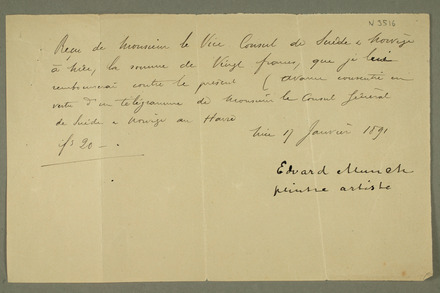 N 3516
Reçu de Monsieur le Vice Consul de Suède & Norvège
à Nice, la somme de Vingt francs, que je
rembourserai contre le présent (avance consentie en
vertu d'un télégramme de Monsieur le Consul Général
de Suède & Norvège au Havre
Nice 17 Janvier 1891
fs 20 -.
Edvard Munch
peintre artiste